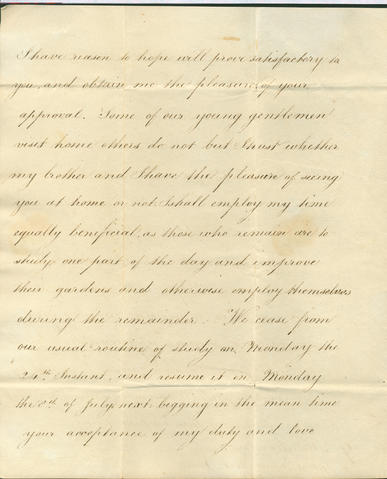 I have reason to hope will prove satisfactory to
you, and obtain me the pleasure of your
approval. Some of our young gentlemen
visit home others do not but I trust whether
my brother and I have the pleasure of seeing
you at home or not I shall employ my time
equally beneficial, as those who remain are to
study one part of the day and improve
their gardens and otherwise employ themselves
during the remainder. We cease from
our usual routine of study on Monday the
24th Instant, and resume it on Monday
the 8th of July next begging in the mean time
your acceptance of my duty and love